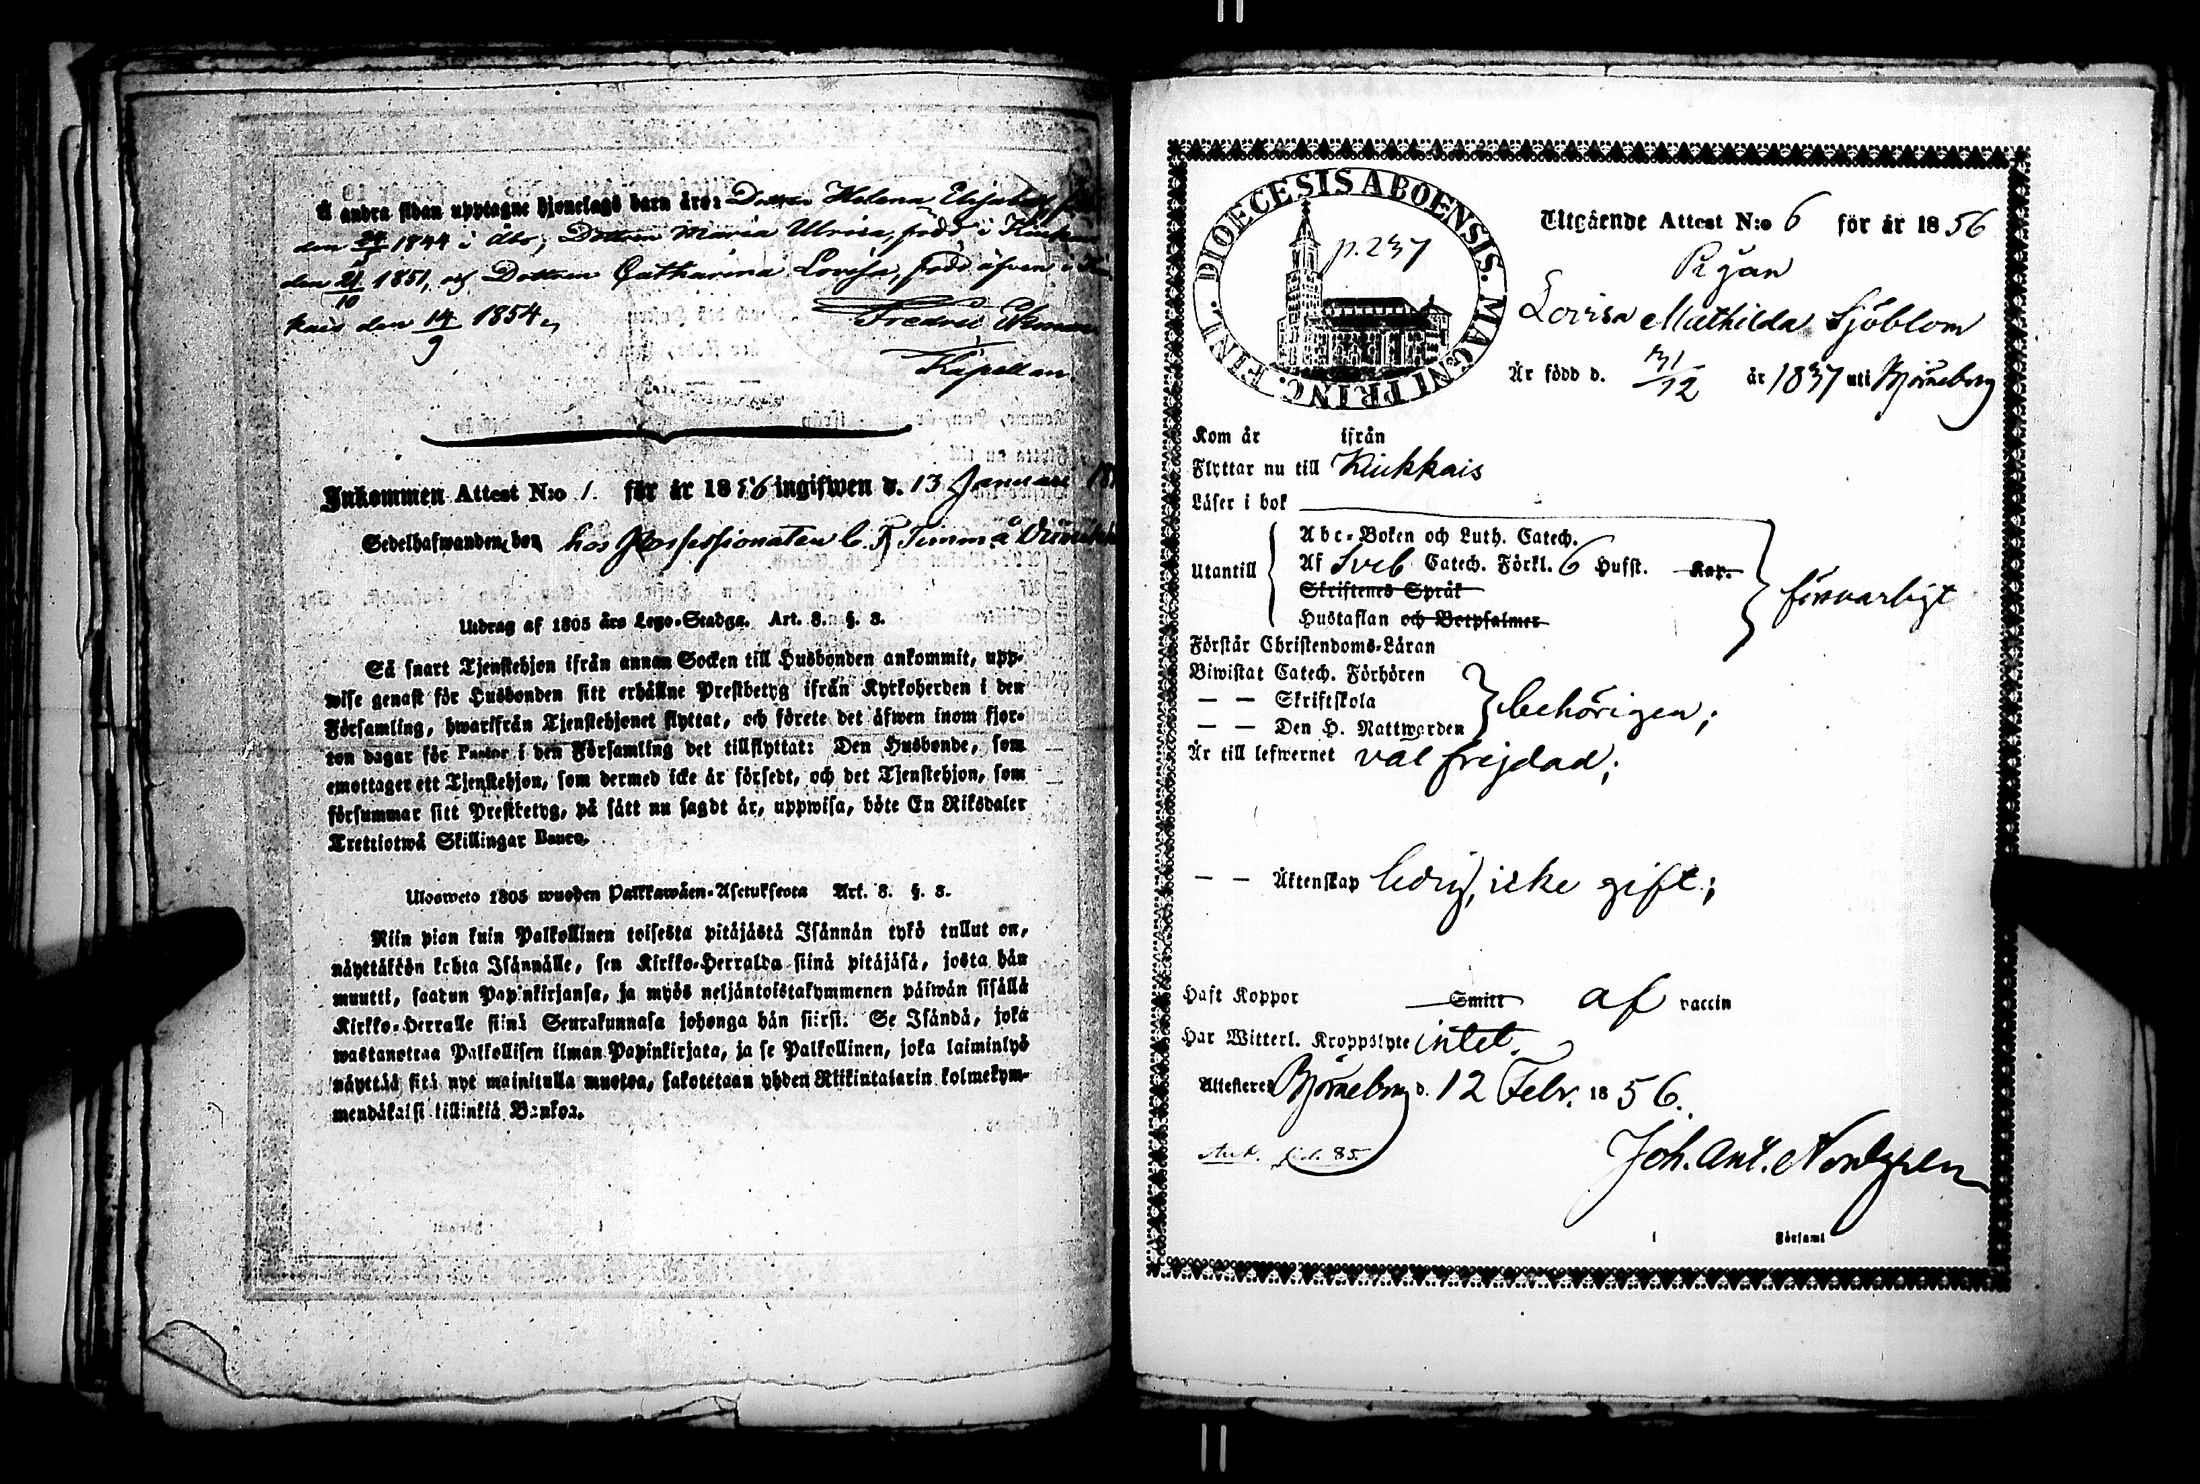 Å andra sidan upptagne hjonelags barn äro: Dottren Helena Elisabeth,
den 24 1844 i Åbo; Dottren Maria Ulrica, född i
den 21/10 1851, och Dottren Catharina Lovisa, född äfven i
kais den 14/9 1854.
Fredric Ekman
Kapellan.
Inkommen Attest N:o 1. för år 1856 ingifwen d. 13 Januari 18
Sedelhafwanden, bor hos Possessionaten C. F. Timm å
Utdrag af 1805 års Lego-Stadga. Art. 8. §. 8.
Så snart Tjenstehjon ifrån annan Socken till Husbonden ankommit, upp-
wise genast för Husbonden sitt erhållne Prestbetyg ifrån Kyrkoherden i den
Församling, hwarifrån Tjenstehjonet flyttat, och förete det äfwen inom fjor-
ton dagar för Pastor i den Församling det tillflyttat: Den Husbonde, som
emottager ett Tjenstehjon, som dermed icke är försedt, och det Tjenstehjon, som
försummar sitt Prestbetyg, på sätt nu sagdt är, uppwisa, böte En Riksdaler
Trettiotwå Skillingar Banco.
Ulosweto 1805 wuoden Palkkawäen-Asetuksesta Art. 8. §. 8.
Niin pian kuin Palkollinen toisesta pitäjästä Isännän tykö tullut on,
näyttäköön kohta Isännälle, sen Kirkko-Herralda siinä pitäjäsä, josta hän
muutti, saadun Papinkirjansa, ja myös neljäntoistakymmenen päiwän sisällä
Kirkko-Herralle siinä Seurakunnasa johonga hän siirsi. Se Isändä, joka
wastanottaa Palkollisen ilman Papinkirjata, ja se Palkollinen, joka laiminlyö
näyttää sitä nyt mainitulla muotoa, sakotetaan yhden Riikintalarin kolmekym-
mendäkaksi killinkiä Bankoa.
DIOECESIS ABOENSIS. MAGNI PRINC. FINL.
p. 237
Utgående Attest N:o 6 för år 1856
Pigan
Lovisa Mathilda Sjöblom
Är född d. 31/12 år 1837 uti Björneborg
Kom år ifrån
Flyttar nu till Kiukkais
Läser i bok
Utantill
Abc-Boken och Luth. Catech.
Af Sveb Catech. Förkl. 6 Hufst. Kap.
Skriftenes Språk
Hustaflan och Botpsalmer
försvarligt
Förstår Christendoms-Läran
Biwistat Catech. Förhören
— — Skriftskola
— — Den H. Nattwarden
behörigen;
Är till lefwernet väl frejdad;
— — Äktenskap ledig, icke gift;
Haft Koppor Smitt af vaccin
Har Witterl. Kroppslyte intet.
Attesterer Björneborg d. 12 Febr. 1856.
Joh. Ant. Nordgren
Församl